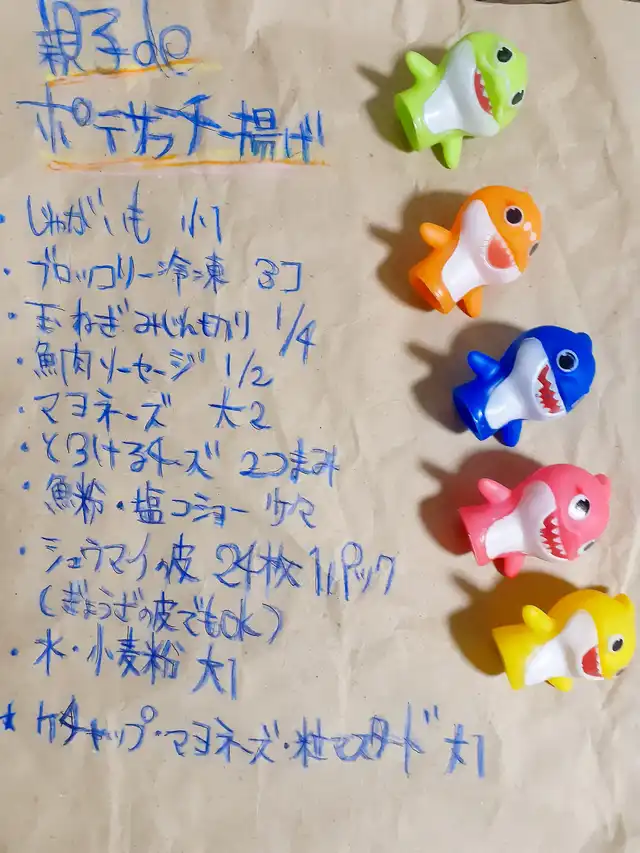 親子de
ポテサラチー揚げ
・じゃがいも 小1
・ブロッコリー冷凍 3コ
・玉ねぎみじん切り 1/4
・魚肉ソーセージ 1/2
・マヨネーズ 大2
・とろけるチーズ 2つまみ
・魚粉・塩コショー 少々
・シュウマイの皮 24枚1パック
(ぎょうざの皮でもOK)
・水・小麦粉 大1
* ケチャップ・マヨネーズ・粒マスタード 大1